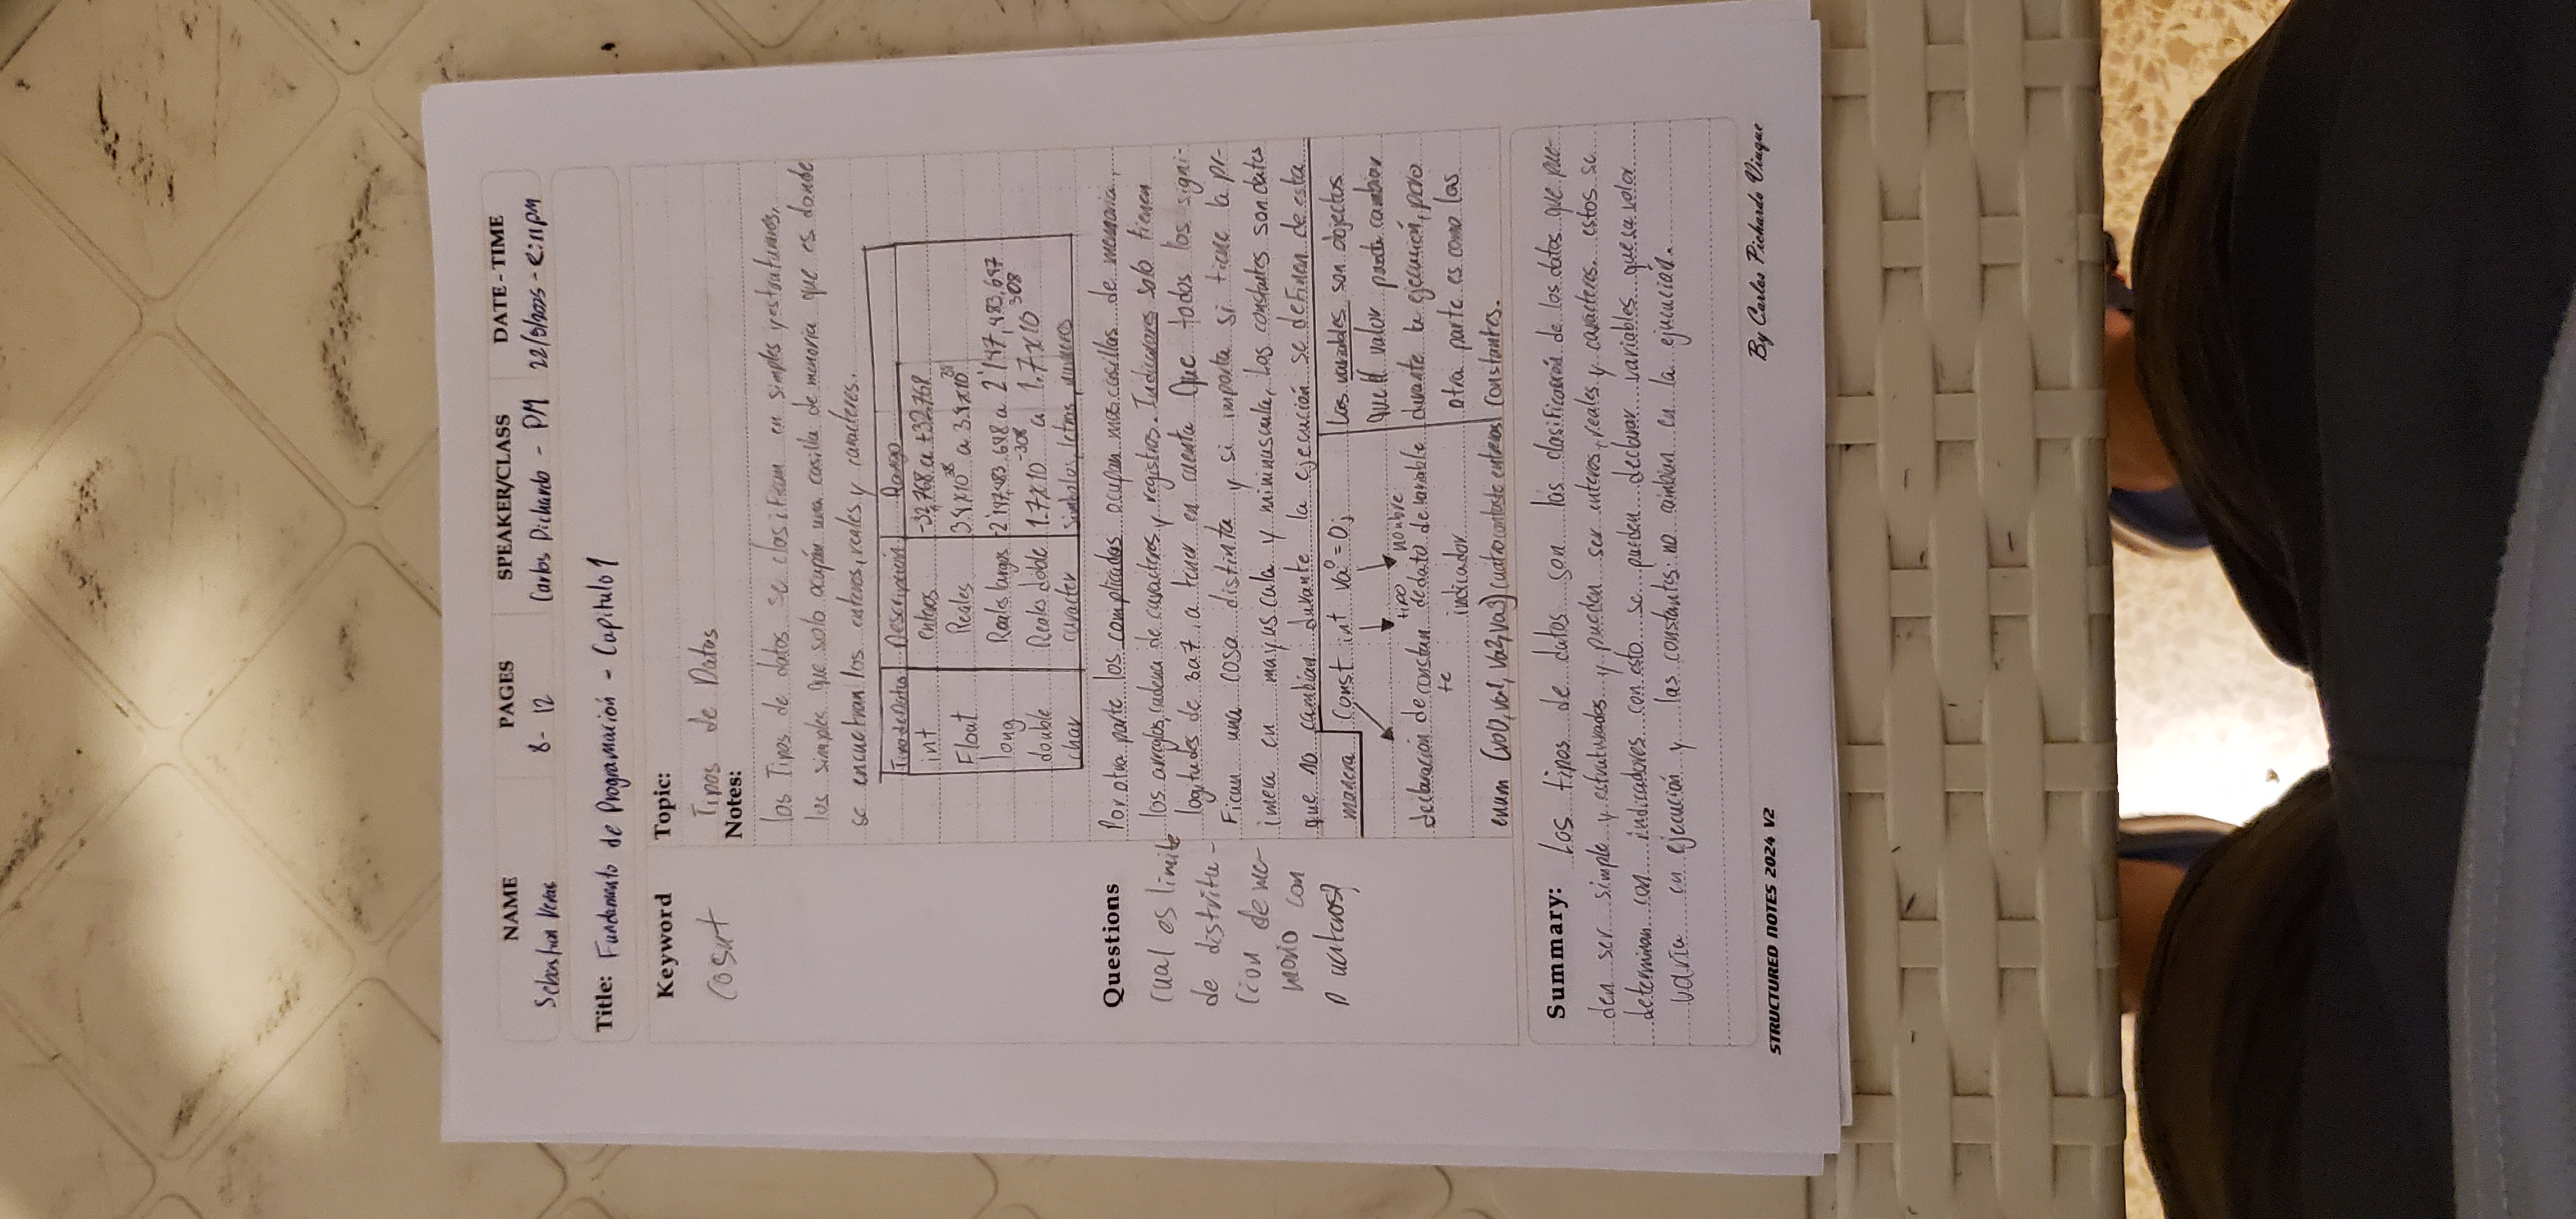 NAME PAGES SPEAKER/CLASS DATE-TIME
Sebastian Veras 8- 12 Carlos Pichardo - PM 22/5/2025 - 2:11PM
Title: Fundamento de Programación - Capitulo 1
Keyword Topic:
cosnt Tipos de Datos
Notes:
los Tipos de datos se clasifican en simples y estruturares,
los simples que solo ocupán una casilla de memoria que es donde
se encuetran los enteros, reales y caracteres.
Tipo de Datos Descripción Rango
int enteros -32,768 a +32.768
Float Reales 3.4x10^38 a 3.4x10^38
long Reales largos -2'147,483,648 a 2'147,483,647
double Reales doble 1.7x10^-308 a 1.7x10^308
char caracter simbolos, letras, numeros
Questions
Por otra parte los complicadas ocupan mas casillas de memoria,
los arreglos, cadena de caracteres y registros. Indicarores solo tienen
logitudes de 3 a 7, a tener en cuenta Que todos los signi-
fican una cosa distinta y si importa si tiene la pr-
imera en mayuscula y mininuscula, Los constantes son datos
que no cambian durante la ejecución se definen de esta
manera const int va0 = 0;
declaración de constante
tipo de dato
nombre de variable
indicador
enum (va0, va1, va2, va3) cuatro
Las variables son objectos
que valor puede cambiar
durante la ejecución, pero
otra parte es como las
constantes.
cual es limite
de distritu-
cion de me-
moria con
Summary: Los tipos de datos son las clasificación de los datos que pue-
den ser simple y estruturados y pueden ser enteros, reales y caracteres. estos se
determinan con indicadores con esto se pueden declarar variables que su valor
varia en ejecución y las constantes no cambian en la ejucución.
STRUCTURED NOTES 2024 V2
By Carlos Pichardo Viuque